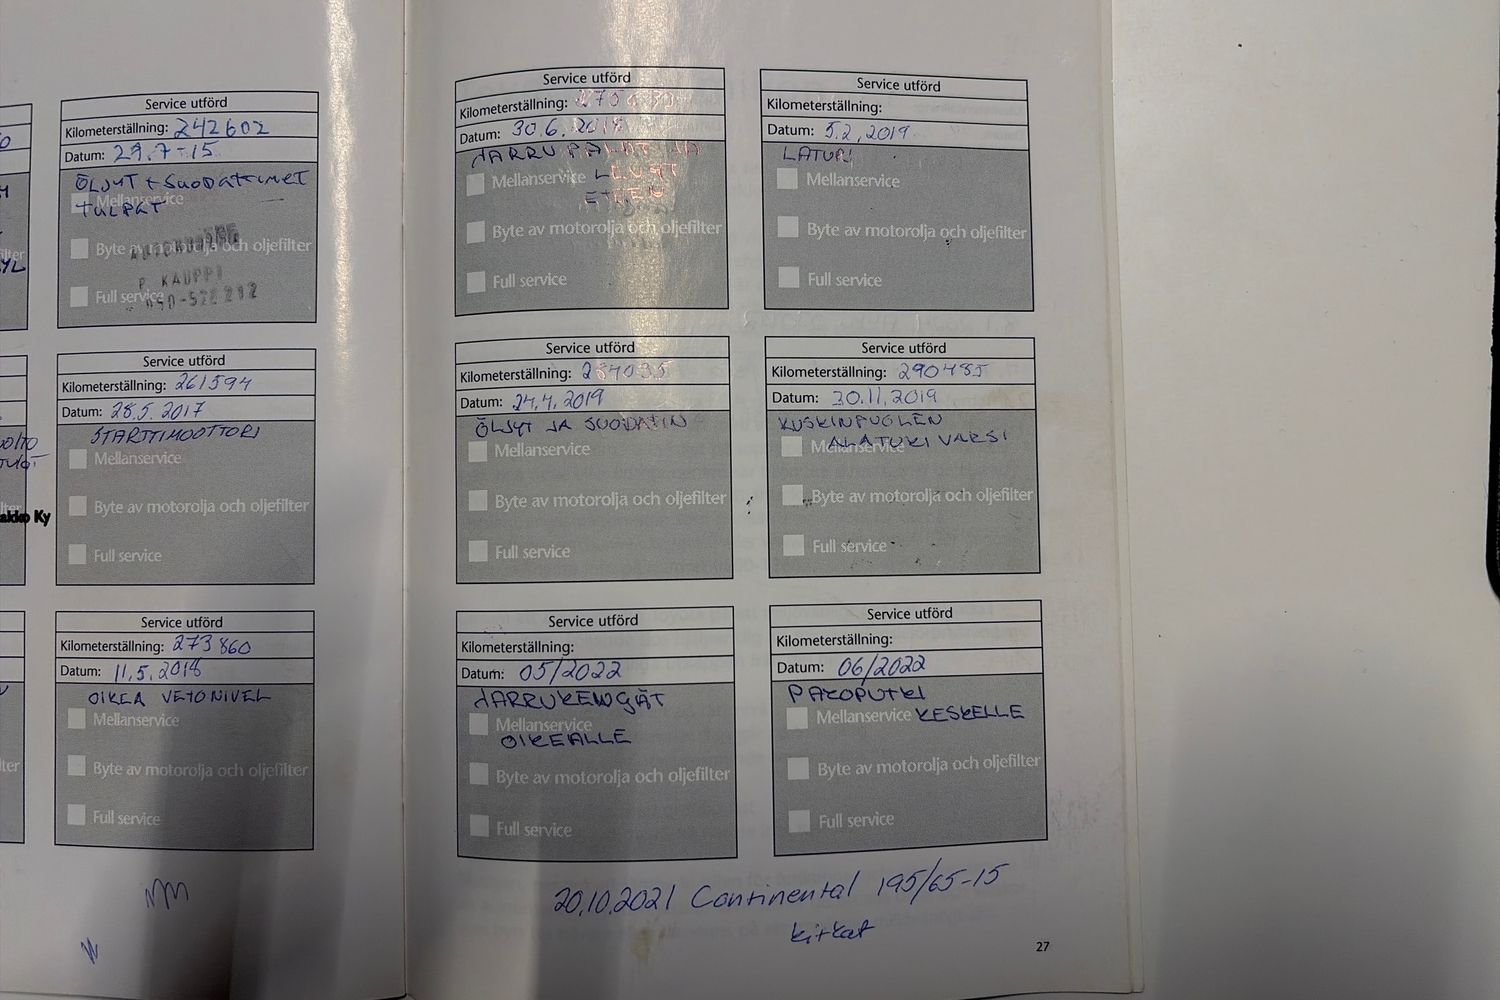 Service utförd
Kilometerställning: 242602
Datum: 29.7-15
ÖLJYT + SUODATTIMET
TULPAT
Mellanservice
Byte av motorolja och oljefilter
P. KAUPPI
Full service
Service utförd
Kilometerställning: 261594
Datum: 28.5.2017
STARTTIMOOTTORI
Mellanservice
Byte av motorolja och oljefilter
Full service
akko Ky
Service utförd
Kilometerställning: 273860
Datum: 11.5.2018
OIKEA VETONIVEL
Mellanservice
Byte av motorolja och oljefilter
Full service
Service utförd
Kilometerställning:
Datum: 30.6.2018
JARRUPALAT JA
LEVYT
ETEEN
Mellanservice
Byte av motorolja och oljefilter
Full service
Service utförd
Kilometerställning:
Datum: 5.2.2019
LATURI
Mellanservice
Byte av motorolja och oljefilter
Full service
Service utförd
Kilometerställning: 284035
Datum: 24.4.2019
ÖLJYT JA SUODATIN
Mellanservice
Byte av motorolja och oljefilter
Full service
Service utförd
Kilometerställning: 290485
Datum: 20.11.2019
KUSKINPUOLEN
ALATUKIVARSI
Mellanservice
Byte av motorolja och oljefilter
Full service
Service utförd
Kilometerställning:
Datum: 05/2022
JARRUKENGÄT
Mellanservice
OIKEALLE
Byte av motorolja och oljefilter
Full service
Service utförd
Kilometerställning:
Datum: 06/2022
PAKOPUTKI
Mellanservice KESKELLE
Byte av motorolja och oljefilter
Full service
20.10.2021 Continental 195/65-15
kitkat
27